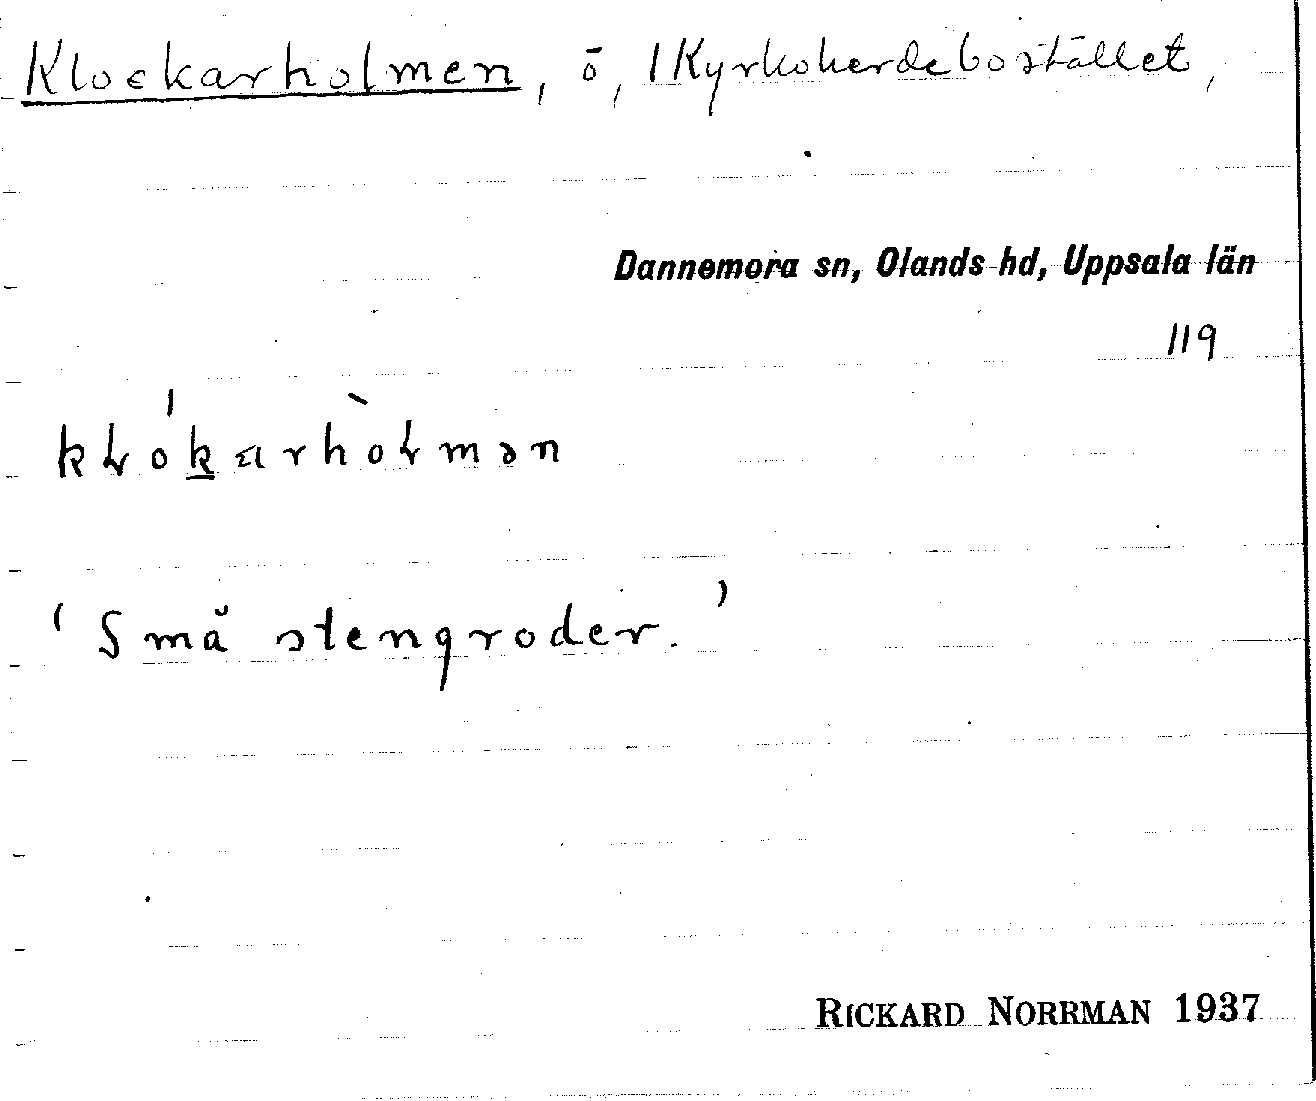 Klockarholmen, ö, 1 Kyrkoherdebostället,
Dannemora sn, Olands hd, Uppsala län
119
kɫókarhòɫmən
'Små stengroder.'
RICKARD NORRMAN 1937